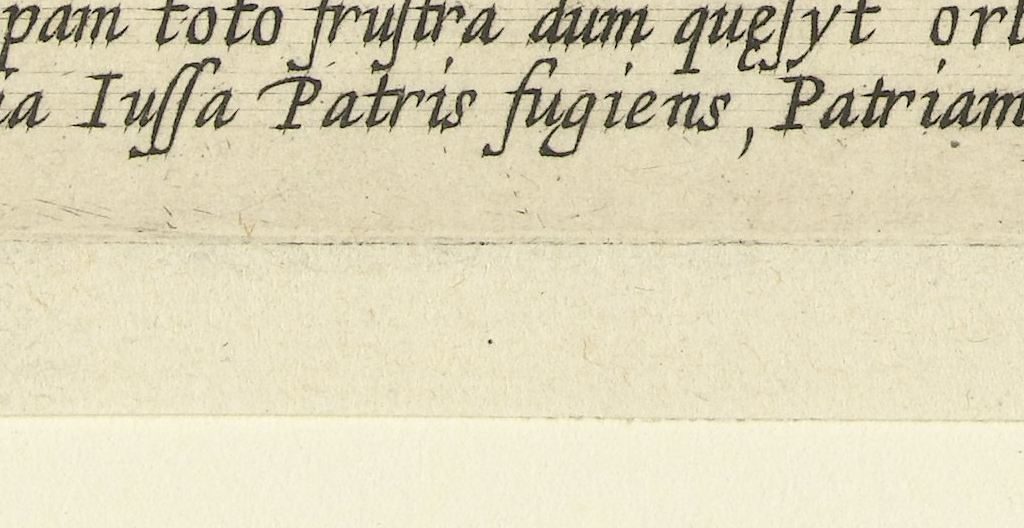 pam toto fruſtra dum quęſyt orb
ia Iuſſa Patris fugiens, Patriam